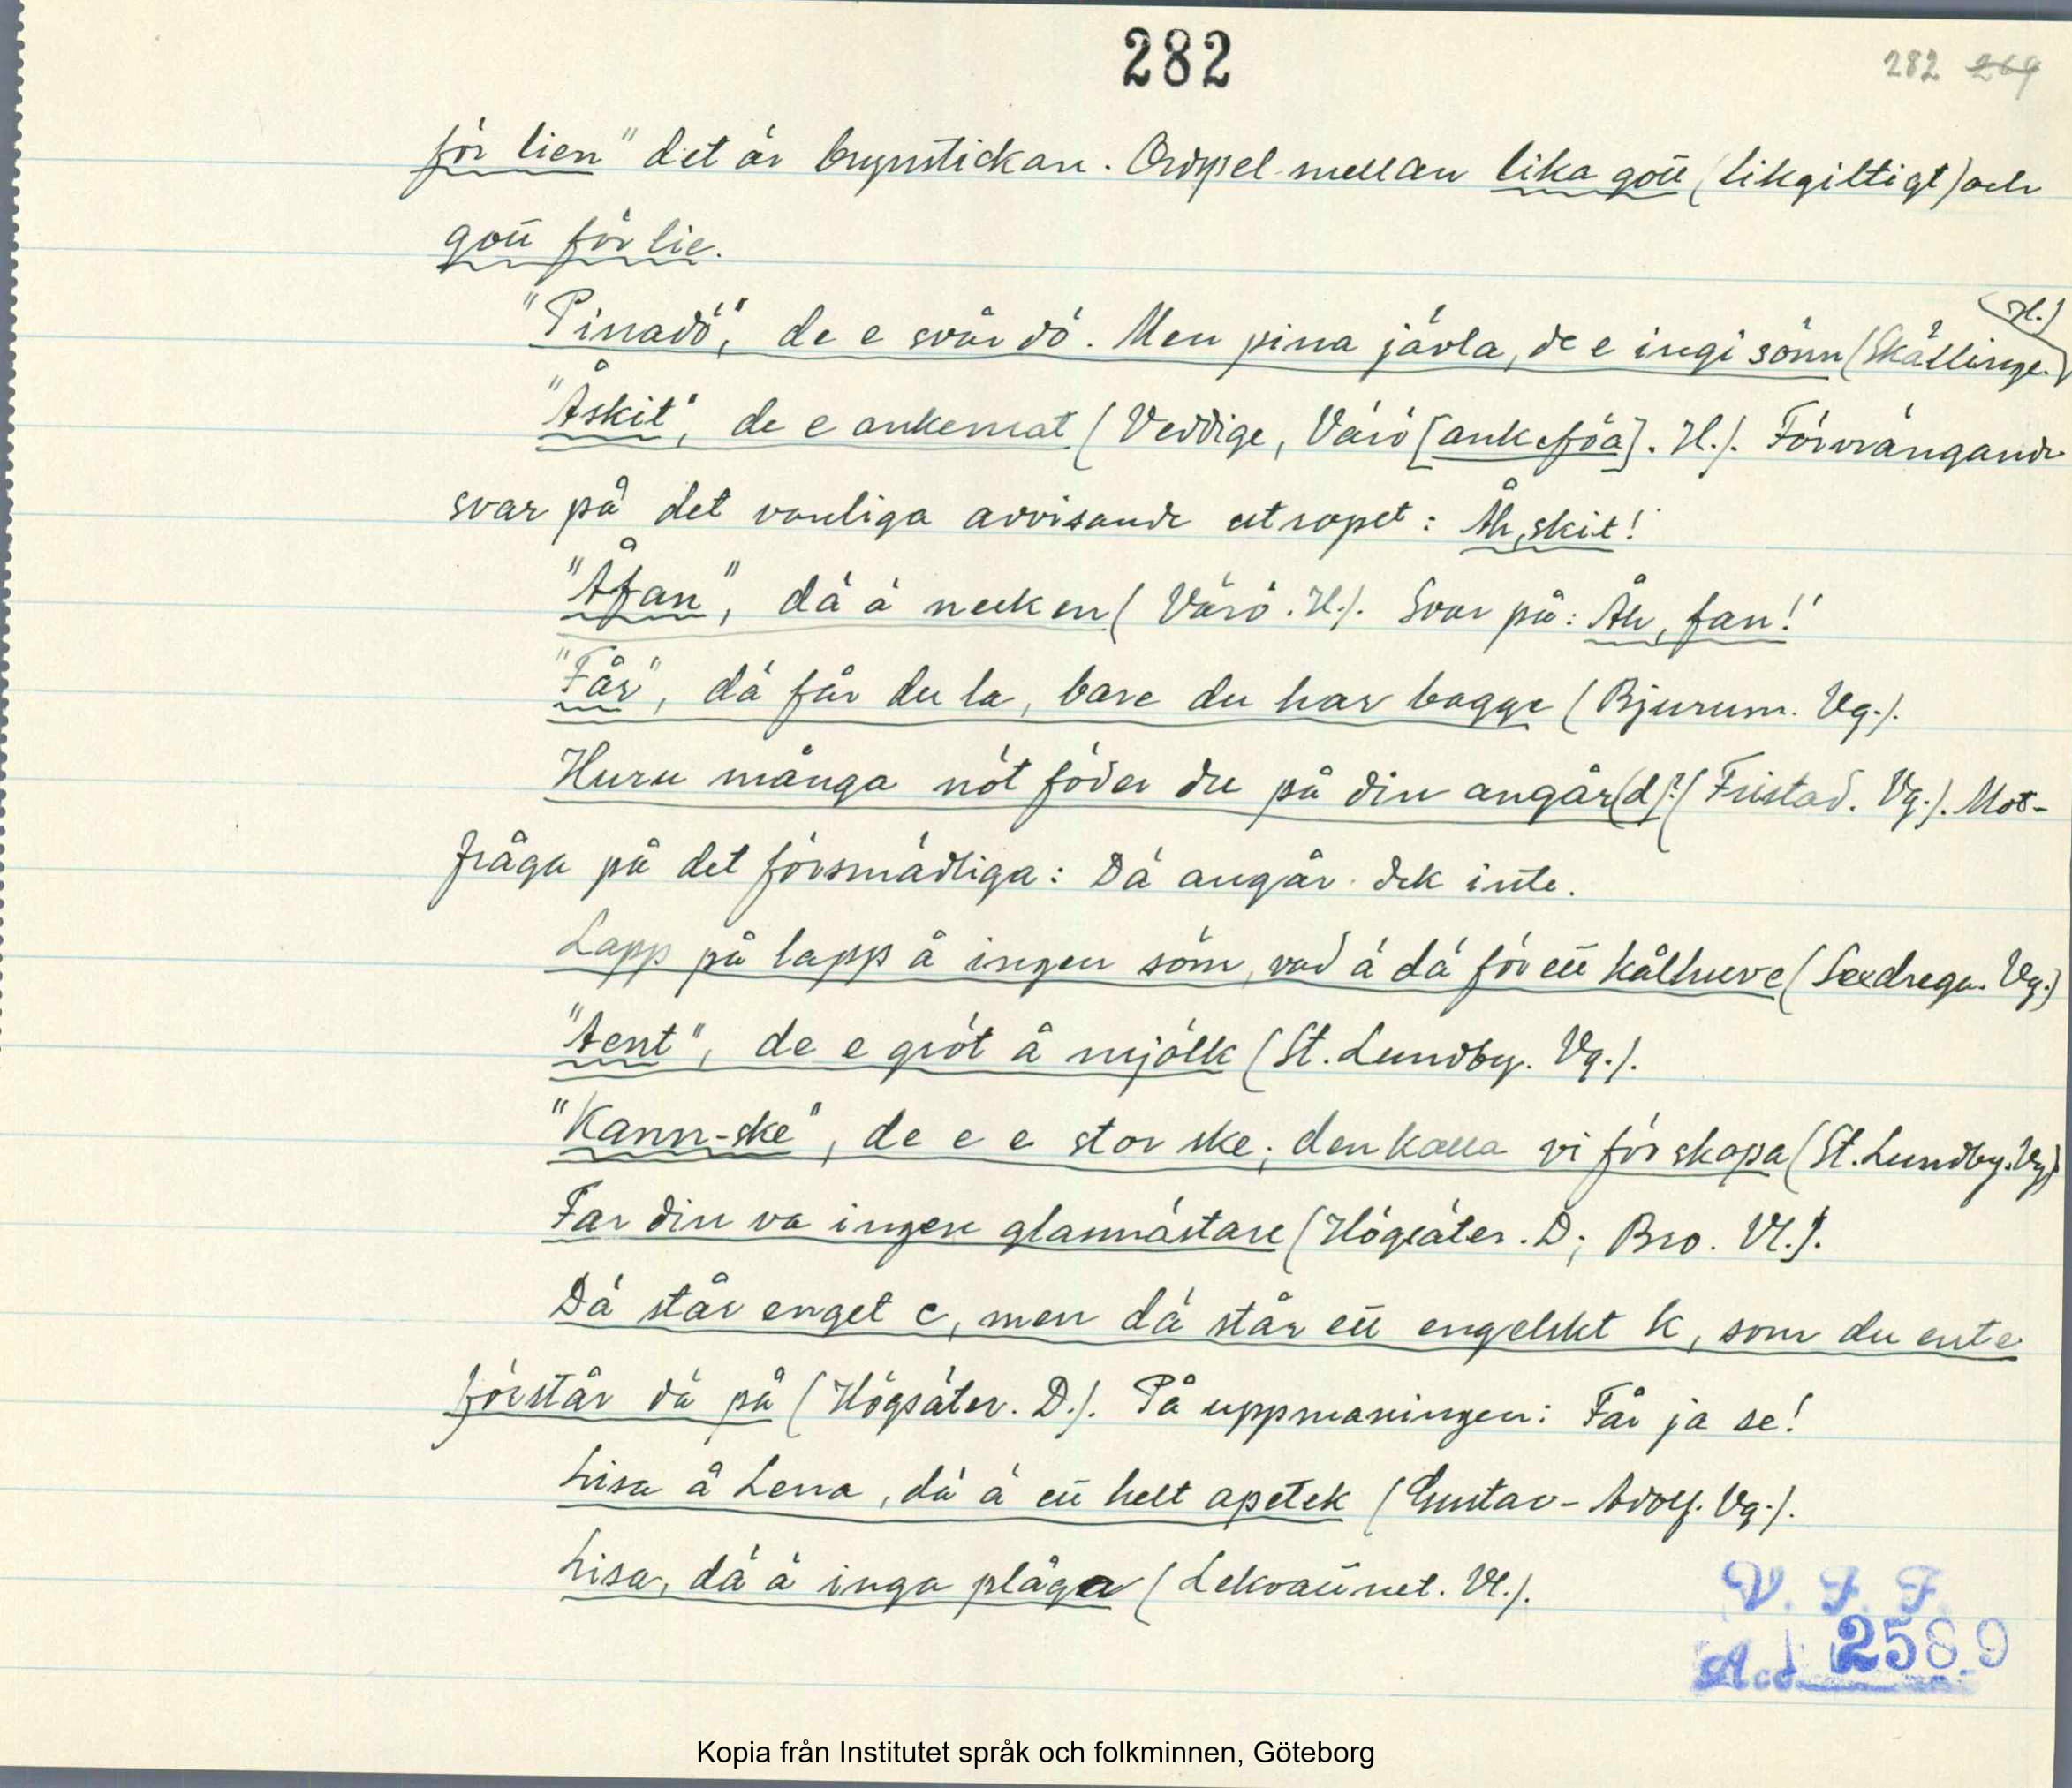 282
282 269
för lien" det är brynstickan. Ordspel mellan lika gott (likgiltigt) och
gott för lie.
"Pinadö", de e svår dö. Men pina jävla, de e ingi sönn (Skällinge. H.)
"Åskit", de e ankemat (Veddige, Värö [ankeföa]. H.). Förvrängande
svar på det vanliga avvisande utropet: Åh, skit!
"Åfan", dä ä necken (Värö. H.). Svar på: Åh, fan!
"Får", dä får du la, bare du har bagge (Bjurum. Vg.).
Huru många nöt föder du på din angår(d)? (Fristad. Vg.). Mot-
fråga på det försmädliga: Dä angår dek inte.
Lapp på lapp å ingen söm, vad ä dä för ett kålhuve (Sexdrega. Vg.)
"Aent", de e gröt å mjölk (St. Lundby. Vg.).
"Kann-ske", de e e stor ske; den kalla vi för skopa (St. Lundby. Vg.)
Far din va ingen glasmästare (Högsäter. D; Bro. Vl.).
Dä står enget c, men dä står ett engelskt k, som du ente
förstår dä på (Högsäter. D.). På uppmaningen: Får ja se!
Lisa å Lena, dä ä ett helt apetek (Gustav-Adolf. Vg.).
Lisa, dä ä inga plåga (Lekvattnet. Vl.).
V. F. F.
Acc. 2589
Kopia från Institutet språk och folkminnen, Göteborg